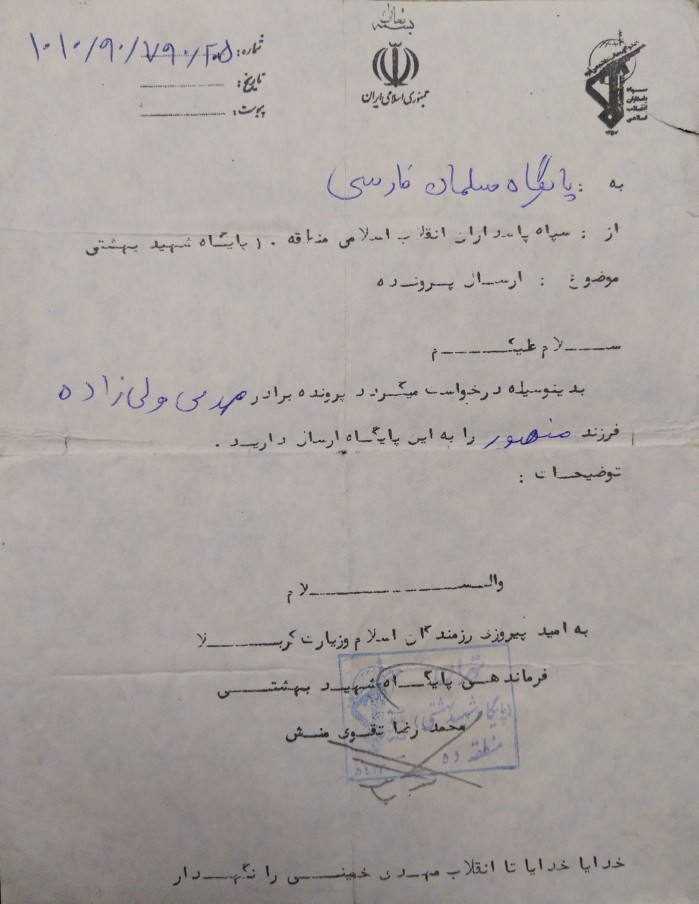 بسمه تعالی
جمهوری اسلامی ایران
سپاه
پاسداران
انقلاب
اسلامی
شماره:
تاریخ:
پیوست:
به : پایگاه سلمان فارسی
از : سپاه پاسداران انقلاب اسلامی منطقه ۱۰ پایگاه شهید بهشتی
موضوع : ارسال پرونده
سلام علیکم
بدینوسیله درخواست میگردد پرونده برادر مهدی ولی زاده
فرزند منصور را به این پایگاه ارسال دارید .
توضیحات :
والسلام
به امید پیروزی رزمندگان اسلام و زیارت کربلا
فرماندهی پایگاه شهید بهشتی
محمد رضا تقوی منش
تهران
(پایگاه شهید بهشتی)
منطقه ده
خدایا خدایا تا انقلاب مهدی خمینی را نگهدار